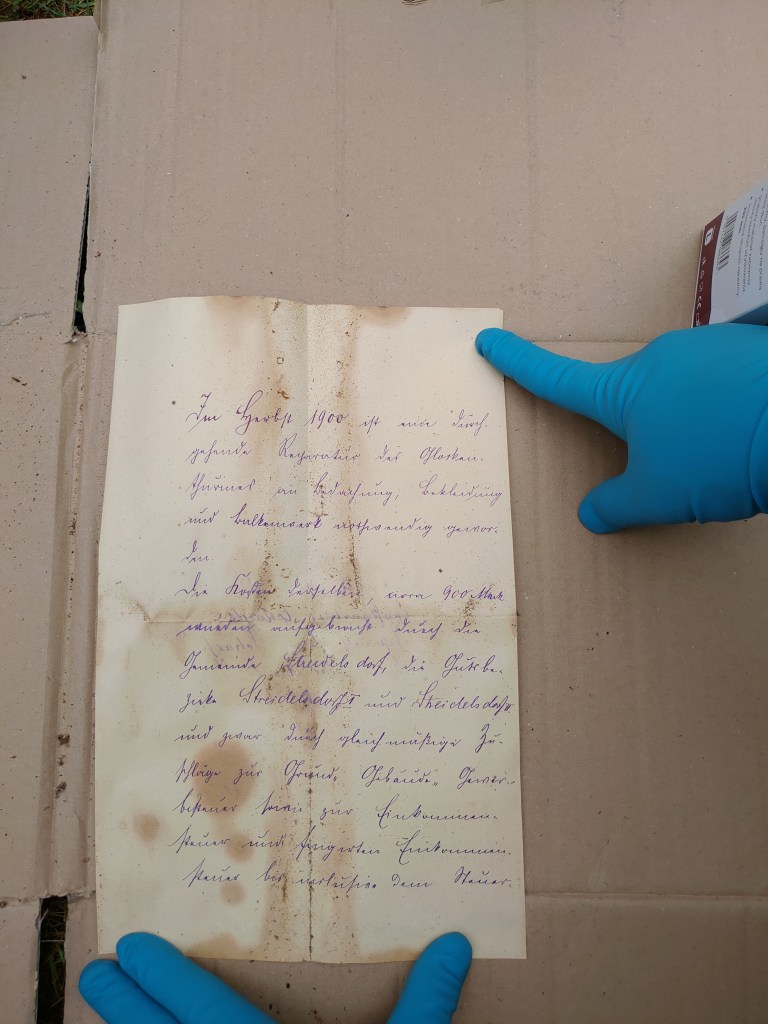 Im Herbst 1900 ist eine durch-
gehende Reparatur des Glocken-
thurmes an Bedachung, Bekleidung
und Balkenwerk nothwendig gewor-
den.
Die Kosten derselben, circa 900 Mark
wurden aufgebracht durch die
Gemeinde Streidelsdorf, die Gutsbe-
zirke Streidelsdorf I und Streidelsdorf II
und zwar durch gleichmäßige Zu-
schläge zur Grund-, Gebäude-, Gewer-
besteuer sowie zur Einkommen-
steuer und fingirten Einkommen-
steuer bis inclusive dem Steuer-